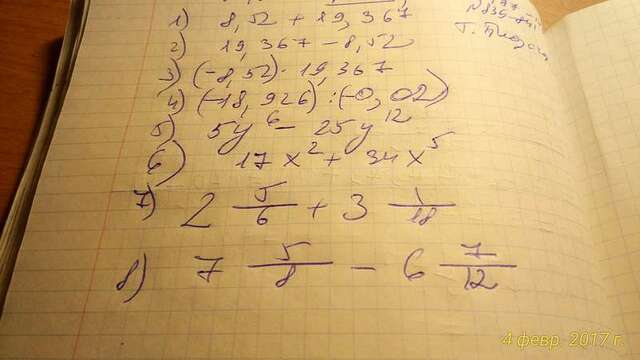 1) 8,52 + 19,367
2) 19,367 - 8,52
3) (-8,52) · 19,367
4) (-18,926) : (-0,02)
5) 5y^6 - 25y^12
6) 17x^2 + 34x^5
7) 2 5/6 + 3 1/18
8) 7 5/8 - 6 7/12
4 февр. 2017 г.